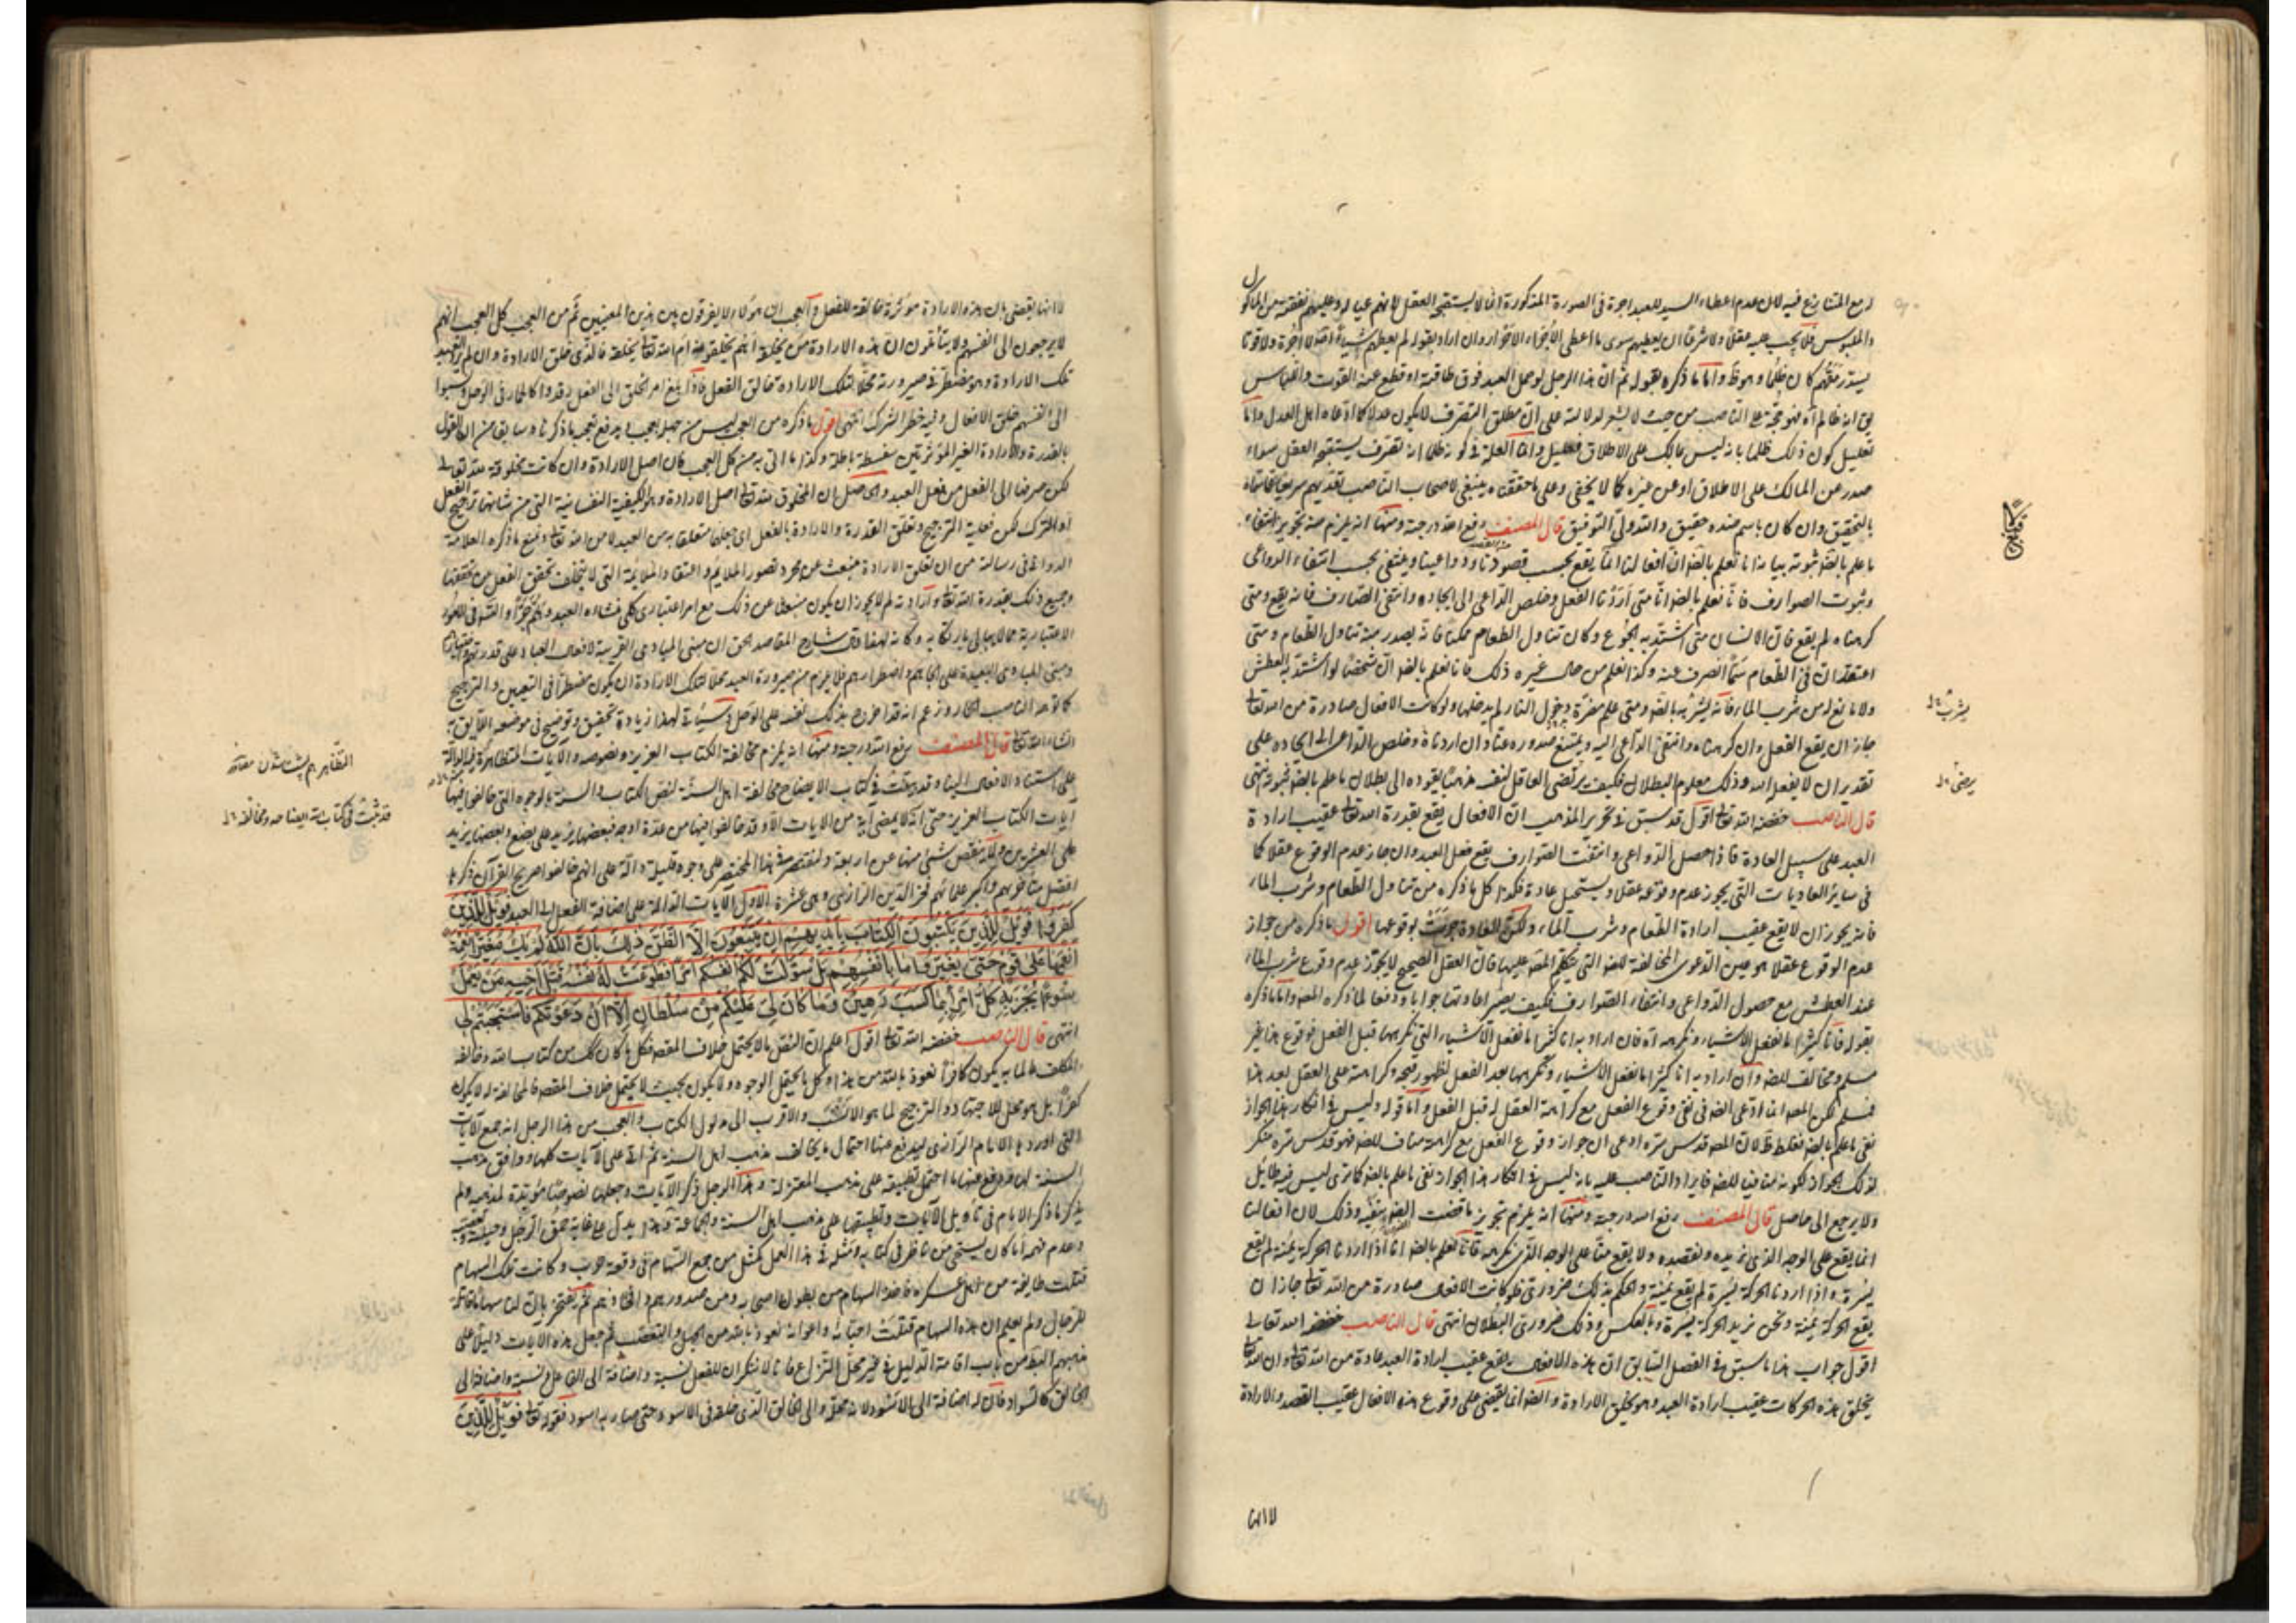 المتنازع فيه لان عدم اعطاء السيد للعبد اجرة في الصورة المذكورة انما لا يستقبح العقل لانهم عياله وعليهم نفقته من الماكول
والملبوس فلا يجب عليه عقلا ولا شرعا ان يعطيهم سوى ما اعطى وان اراد بقوله لم يعطهم شيئا اصلا لا اجرة ولا قوتا
يسد رمقهم كان ظلما وهو ظ واما ما ذكره بقوله ثم ان هذا الرجل لو حمل العبد فوق طاقته او قطع عنه القوت واللباس
فهو حجة على الناصب من حيث لا يشعر لدلالته على ان مطلق التصرف لا يكون عدلا كما ادعاه اهل العدل واما
تعليل كون ذلك ظلما بانه ليس بمالك على الاطلاق فعليل وانما العلة في كونه ظلما انه تصرف يستقبحه العقل سواء
صدر عن المالك على الاطلاق او عن غيره كما لا يخفى وعلى ما حققناه ينبغي لاصحاب الناصب
بالتحقيق وان كان باسم ضده حقيق والله ولي التوفيق قال المصنف رفع الله درجته ومنها انه يلزم منه تجويز انتفاء
ما علم بالضرورة ثبوته بيانه انا نعلم بالضرورة ان افعالنا انما يقع بحسب قصودنا ودواعينا وينتفي بحسب انتفاء الدواعي
وثبوت الصوارف فانا نعلم بالضرورة انا متى اردنا الفعل وخلص الداعي الى ايجاده وانتفى الصارف فانه يقع ومتى
كرهناه لم يقع فان الانسان متى اشتد به الجوع وكان تناول الطعام ممكنا فانه يصدر منه تناول الطعام ومتى
اعتقد ان في الطعام سما انصرف عنه وكذا نعلم من حال غيره ذلك فانا نعلم بالضرورة ان شخصا لو اشتد به العطش
ولا مانع له من شرب الماء فانه يشربه بالضرورة ومتى علم مضرة دخول النار لم يدخلها ولو كانت الافعال صادرة من الله تعالى
جاز ان يقع الفعل وان كرهناه وانتفى الداعي اليه ويمتنع صدوره عنا وان اردناه وخلص الداعي الى ايجاده على
تقدير ان لا يفعله الله وذلك معلوم البطلان فكيف يرتضي العاقل لنفسه مذهبا يقوده الى بطلان ما علم بالضرورة ثبوته انتهى
قال الناصب خفضه الله تعالى اقول قد سبق في تحرير المذهب ان الافعال يقع بقدرة الله تعالى عقيب ارادة
العبد على سبيل العادة فاذا حصل الدواعي وانتفت الصوارف يقع فعل العبد وان جاز عدم الوقوع عقلا كما
في سائر العاديات التي يجوز عدم وقوعه عقلا ويستحيل عادة فكذا كل ما ذكره من تناول الطعام وشرب الماء
فانه يجوز ان لا يقع عقيب ارادة الطعام وشرب الماء ولكن العادة جرت بوقوعها اقول ما ذكره من جواز
عدم الوقوع عقلا هو عين الدعوى المخالفة للضرورة التي يحكم المصنف عليها فان العقل الصحيح لا يجوز عدم وقوع شرب الماء
عند العطش مع حصول الدواعي وانتفاء الصوارف فكيف يصير اعادتها جوابا ودفعا لما ذكره المصنف واما ما ذكره
بقوله فانا كثيرا ما نفعل الاشياء ونكرهه اه فان اراد به انا كثيرا ما نفعل الاشياء التي نكرهها قبل الفعل فوقوع هذا غير
مسلم ومخالف للضرورة وان اراد به انا كثيرا ما نفعل الاشياء ونكرهها بعد الفعل لظهور قبحه وكراهته على العقل بعد هذا
فمسلم لكن المصنف انما ادعى الضرورة في نفي وقوع الفعل مع كراهة العقل له قبل الفعل واما قوله وليس في انكار هذا الجواز
نفي ما علم بالضرورة فغلط لان المصنف قدس سره ادعى ان جواز وقوع الفعل مع كراهته مناف للضرورة فهو قدس سره منكر
لذلك الجواز لكونه منافيا للضرورة فايراد الناصب عليه بانه ليس في انكار هذا الجواز نفي ما علم بالضرورة كما ترى ليس فيه طائل
ولا يرجع الى حاصل قال المصنف رفع الله درجته ومنها انه يلزم تجويز ما قضت الضرورة بنفيه وذلك لان افعالنا
انما يقع على الوجه الذي نريده ونقصده ولا يقع منا على الوجه الذي نكرهه فانا نعلم بالضرورة انا اذا اردنا الحركة يمنة لم يقع
يسرة واذا اردنا الحركة يسرة لم يقع يمنة والحكم بذلك ضروري فلو كانت الافعال صادرة من الله تعالى جاز ان
يقع الحركة يمنة ونحن نريد الحركة يسرة وبالعكس وذلك ضروري البطلان انتهى قال الناصب خفضه الله تعالى
اقول جواب هذا ما سبق في الفصل السابق ان هذه الافعال يقع عقيب ارادة العبد عادة من الله تعالى وان الله تعالى
يخلق هذه الحركات عقيب ارادة العبد وهو يخلق الارادة والضرورة انما يقضي على وقوع هذه الافعال عقيب القصد والارادة
لا انها
لا انها يقضي بان هذه الارادة مؤثرة خالقة للفعل والعجب ان هؤلاء لا يفرقون بين هذين المعنيين ثم من العجب كل العجب انهم
لا يرجعون الى انفسهم ولا يتأملون ان هذه الارادة من يخلقه أهم يخلقونه ام الله تعالى يخلقه فالذي خلق الارادة وان لم يرد العبد
تلك الارادة وهو مضطر في صيرورته محلا لتلك الارادة خالق الفعل فاذا بلغ امر الخلق الى الفعل رقدوا كالحمار في الوحل ونسبوا
الى انفسهم خلق الافعال وفيه خطر الشرك انتهى اقول ما ذكره من العجب ليس من جملة العجب اذ يرفع عجبه ما ذكرناه سابقا من ان القول
بالقدرة والارادة الغير المؤثرتين سفسطة باطلة وكذا ما اتى به من كل العجب فان اصل الارادة وان كانت مخلوقة لله تعالى
لكن صرفها الى الفعل من فعل العبد والحاصل ان المخلوق لله تعالى اصل الارادة وهو الكيفية النفسانية التي من شانها ترجيح الفعل
او الترك لكن فعلية الترجيح وتعلق القدرة والارادة بالفعل اي جعلها متعلقا به من العبد لا من الله تعالى ونمنع ما ذكره العلامة
الدواني في رسالته من ان تعلق الارادة منبعث عن مجرد تصور الملايم واعتقاد الملايمة التي لا يتخلف تحقق الفعل من تحققها
وجميع ذلك بقدرة الله تعالى وارادته لم لا يجوز ان يكون منبعثا عن ذلك مع امر اعتباري
الاعتبارية وكأنه لهذا قال شارح المقاصد الحق ان مبنى المبادي القريبة لافعال العباد على قدرتهم واختيارهم
ومبنى المبادي البعيدة على الجائهم واضطرارهم فلا يلزم من صيرورة العبد محلا لتلك الارادة ان يكون مضطرا في التعيين والترجيح
كما توهمه الناصب الحمار وزعم انه قد اخرج بذلك نفسه عن الوحل وسيأتي لهذا زيادة تحقيق وتوضيح في موضعه اللايق به
انشاء الله تعالى قال المصنف رفع الله درجته ومنها انه يلزم مخالفة الكتاب العزيز ونصوصه والآيات المتظاهرة فيه الدالة
على استناد الافعال الينا وقد بينت في كتاب الايضاح مخالفة اهل السنة لنص الكتاب والسنة بالوجوه التي خالفوا فيها
آيات الكتاب العزيز حتى انه لا يمضي آية من الآيات الا وقد خالفوا فيها من عدة اوجه فبعضها يزيد على بضع وبعضها يزيد
على العشرين ولا ينقص شئ منها عن اربعة ولنقتصر في هذا المختصر على وجوه قليلة دالة على انهم خالفوا صريح القرآن ذكرها
افضل متاخريهم واكبر علمائهم فخر الدين الرازي وهي عشرة الاول الآيات الدالة على اضافة الفعل الى العبد فَوَيْلٌ لِلَّذِينَ
كَفَرُوا فَوَيْلٌ لِلَّذِينَ يَكْتُبُونَ الْكِتَابَ بِأَيْدِيهِمْ إِنْ يَتَّبِعُونَ إِلَّا الظَّنَّ ذَلِكَ بِأَنَّ اللَّهَ لَمْ يَكُ مُغَيِّرًا نِعْمَةً
أَنْعَمَهَا عَلَى قَوْمٍ حَتَّى يُغَيِّرُوا مَا بِأَنْفُسِهِمْ بَلْ سَوَّلَتْ لَكُمْ أَنْفُسُكُمْ أَمْرًا فَطَوَّعَتْ لَهُ نَفْسُهُ قَتْلَ أَخِيهِ مَنْ يَعْمَلْ
سُوءًا يُجْزَ بِهِ كُلُّ امْرِئٍ بِمَا كَسَبَ رَهِينٌ وَمَا كَانَ لِيَ عَلَيْكُمْ مِنْ سُلْطَانٍ إِلَّا أَنْ دَعَوْتُكُمْ فَاسْتَجَبْتُمْ لِي
انتهى قال الناصب خفضه الله تعالى اقول اعلم ان النص ما لا يحتمل خلاف المقصد فكل ما كان كذلك من كتاب الله وخالفه
المكلف عالما به يكون كافرا نعوذ بالله من هذا وكل ما يحتمل الوجوه ولا يكون بحيث لا يحتمل خلاف المقصد فالمخالفة له لا يكون
كفرا بل هو محل للاجتهاد والترجيح لما هو الانسب والاقرب الى مدلول الكتاب والعجب من هذا الرجل انه جمع الآيات
التي اوردها الامام الرازي ليدفع عنها احتمال ما يخالف مذهب اهل السنة ثم اتى على الآيات كلها ووافق مذهب
السنة لها ودفع عنها ما احتمل تطبيقه على مذهب المعتزلة وهذا الرجل ذكر الآيات وجعلها نصوصا مؤيدة لمذهبه ولم
يذكر ما ذكر الامام في تأويل الآيات وتطبيقها على مذهب اهل السنة والجماعة وهذا يدل على غاية حمق الرجل وحيلته وتعصبه
وعدم فهمه اما كان يستحي من ناظر في كتابه ومثله في هذا العمل كمثل من جمع السهام في وقعة حرب وكانت تلك السهام
قتلت طايفة من اهل عسكره فاخذ السهام من بطون اصحابه ومن صدورهم وافخاذهم ثم يفتخر بان لنا سهاما قاتلة
للرجال ولم يعلم ان هذه السهام قتلت احباءه واعوانه نعوذ بالله من الجهل والتعصب ثم جعل هذه الآيات دليلا على
مذهبهم الباطل من باب اقامة الدليل في غير محل النزاع فانا لا ننكر ان للفعل نسبة واضافة الى الفاعل نسبة واضافة الى
الخالق كالسواد فان له اضافة الى الاسود لانه محله والى الخالق الذي خلقه في الاسود حتى صار به اسود فقوله تعالى فَوَيْلٌ لِلَّذِينَ